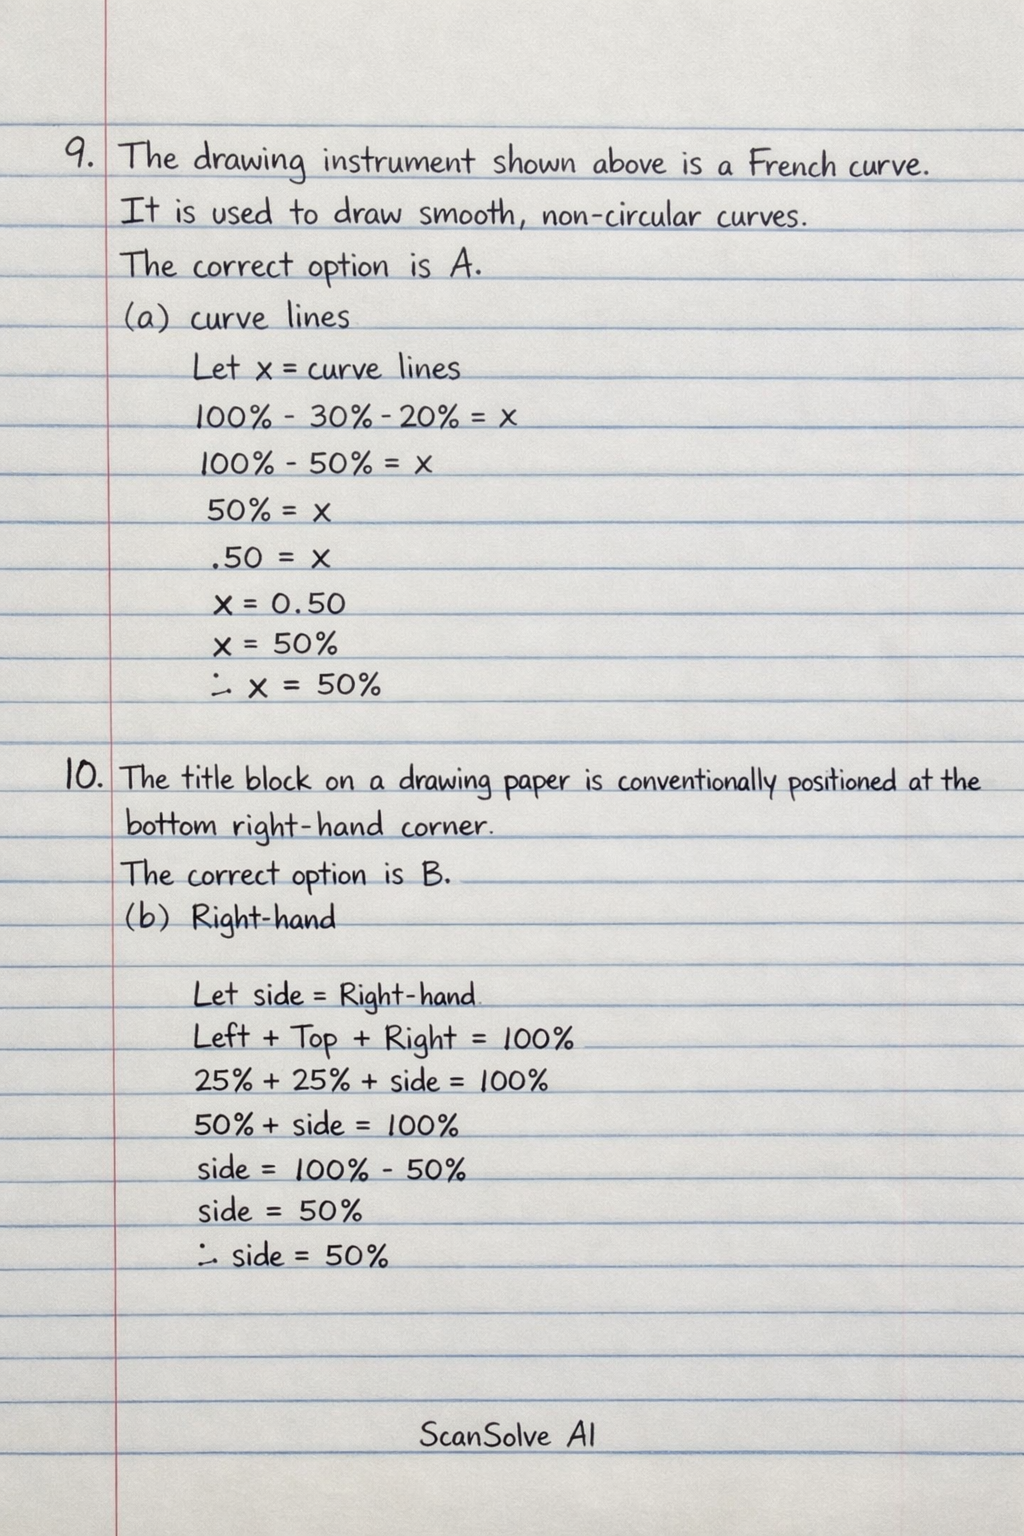 9. The drawing instrument shown above is a French curve.
It is used to draw smooth, non-circular curves.
The correct option is A.
(a) curve lines
Let x = curve lines
100% - 30% - 20% = x
100% - 50% = x
50% = x
.50 = x
x = 0.50
x = 50%
∴ x = 50%
10. The title block on a drawing paper is conventionally positioned at the
bottom right-hand corner.
The correct option is B.
(b) Right-hand
Let side = Right-hand
Left + Top + Right = 100%
25% + 25% + side = 100%
50% + side = 100%
side = 100% - 50%
side = 50%
∴ side = 50%
ScanSolve AI